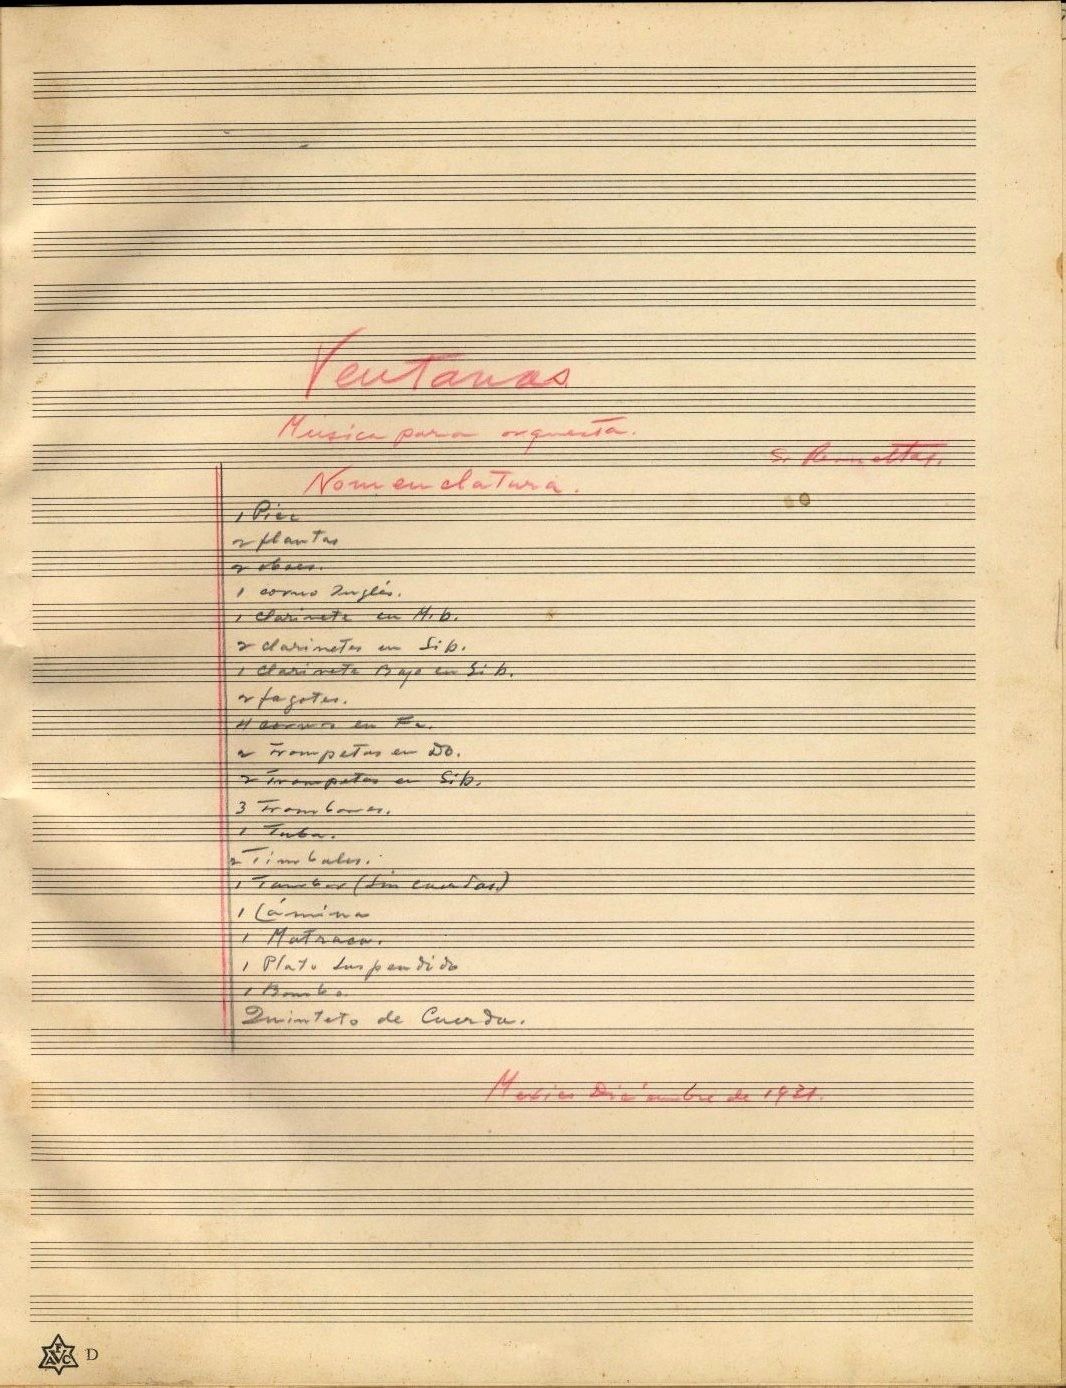 Ventanas
Musica para orquesta.
S. Revueltas.
Nomenclatura.
1 Picc
2 flautas
2 oboes.
1 corno Inglés.
1 clarinete en Mib.
2 clarinetes en Sib.
1 clarinete Bajo en Sib.
2 fagotes.
4 cornos en Fa.
2 Trompetas en DO.
2 Trompetas en Sib.
3 Trombones.
1 Tuba.
2 Timbales.
1 Tambor (sin cuerdas)
1 Lámina
1 Matraca.
1 Plato suspendido
1 Bombo.
Quinteto de Cuerda.
Mexico Diciembre de 1931.
AFVC D